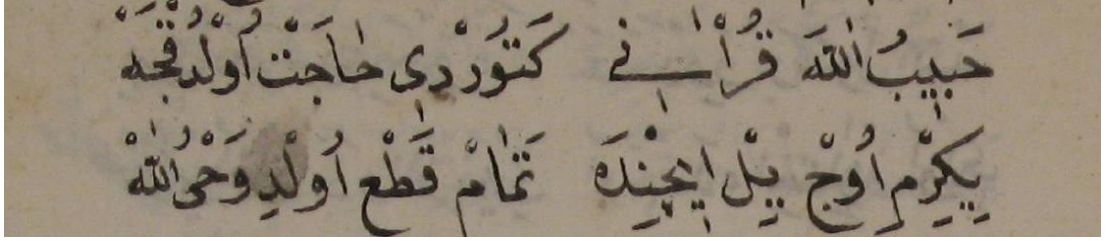 حَبِيبُ اللهَ قُرْاٰنِى كَتُوْرْدِى حَاجَتْ اُوْلْدُقْجَهْ
يِكِرْمِ اُوْجْ يِيْلْ اِيچِنْدَهَ تَمَامْ قَطْعِ اُولْدِ وَحْىُ اللهْ